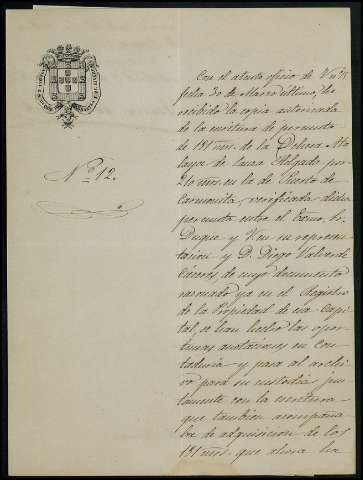 Nº 12.
Con el atento oficio de Vm.
fecha 30 de Marzo último, he
recibido la copia autorizada
de la escritura de permuta
de 181 mrs. de la Dehesa
de por
210 mrs. en la de Puerto de
Carmonita, verificada dicha
permuta entre el Excmo. Sr.
Duque y Vm. en su represen-
tacion y D. Diego Valverde
Cáceres, de cuyo documento
razonado ya en el Registro
de la Propiedad de esa Capi-
tal, se han hecho las opor-
tunas anotaciones en Con-
taduria y pasa al archi-
vo para su custodia jun-
tamente con la escritura
que tambien acompaña-
ba de adquisicion de los
181 mrs. que ahora ha